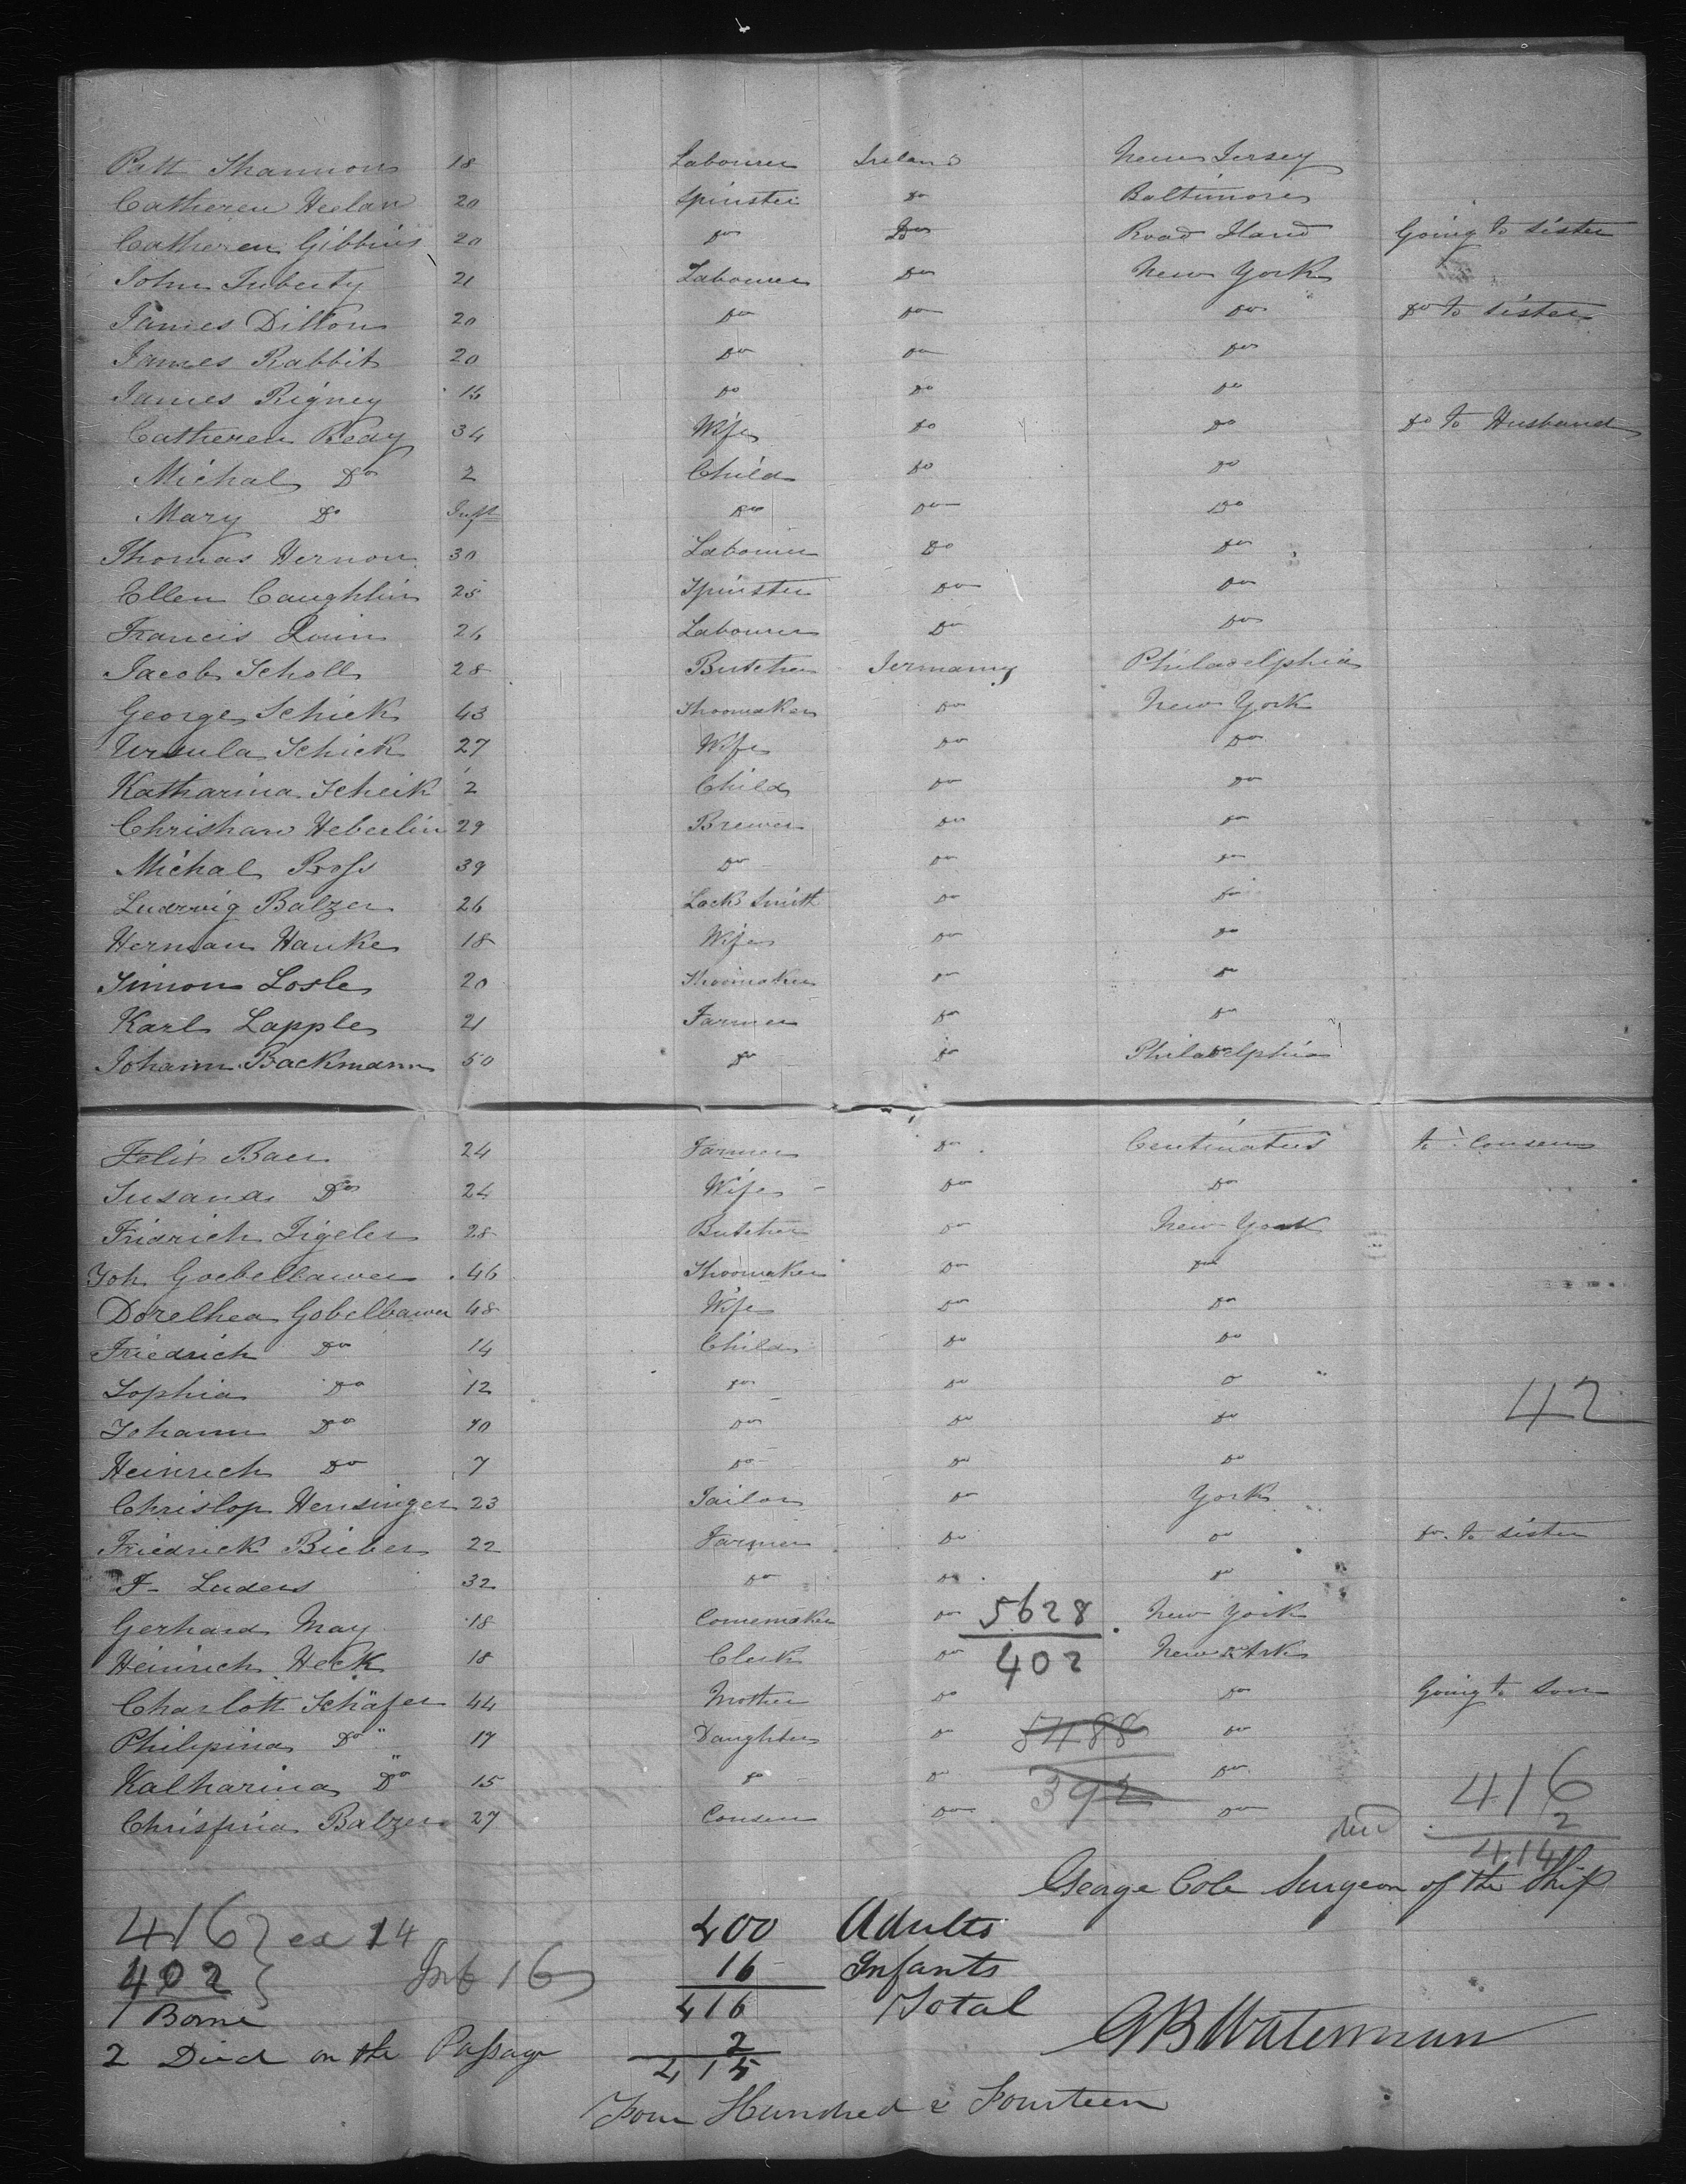 Patt Shannon 18 Labourer Ireland New Jersey
Catheren Heelan 20 Spinster Do Baltimore
Catheren Gibbins 20 Do Do Road Iland Going to sister
John Tuberty 21 Labourer Do New York
James Dillon 20 Do Do Do Do to sister
James Rabbit 20 Do Do Do
James Rigney Do Do Do
Catheren Reay 34 Wife Do Do Do to Husband
Michal Do 2 Child Do Do
Mary Do Inft Do Do Do
Thomas Hernon 30 Labourer Do Do
Ellen Caughlin 25 Spinster Do Do
Francis Quin 26 Labourer Do Do
Jacob Scholl 28 Butcher Jermany Philadelphia
George Schick 43 Shoomaker Do New York
Ursula Schick 27 Wife Do Do
Katharina Scheik 2 Child Do Do
Christian Heberlin 29 Brewer Do Do
Michal Ross 39 Do Do Do
Ludwig Balzer 26 Lock Smith Do Do
Herman Hanke 18 Wife Do Do
Simon Losle 20 Shoomaker Do Do
Karl Lapple 21 Farmer Do Do
Johann Backmann 50 Do Do Philadelphia
Felix Baer 24 Farmer Do Centinatus to Consen
Susana Do 24 Wife Do Do
Fridrich Zigeler 28 Butcher Do New York
Joh Goebellawer 46 Shoomaker Do Do
Dorelhea Gobelbawer 48 Wife Do Do
Friedrich Do 14 Child Do Do
Sophia Do 12 Do Do Do
42
Johann Do 10 Do Do Do
Heinrich Do 7 Do Do Do
Chrislop Hensinger 23 Tailor Do York
Friedrick Bieber 22 Farmer Do Do Do to sister
F- Luders 32 Do Do Do
Gerhard May 18 Comemaker Do 5628 New York
Heinrich Heck 18 Clerk Do 402 New Ark
Charlott Schäfer 44 Mother Do Do Going to Son
Philipina Do 17 Daughter Do 5488 Do
Katharina Do 15 Do Do 392 Do 416
Chrispina Balzer 27 Consen Do Do 2
414
George Cole Surgeon of the Ship
416 } ex 14 400 Adults
402 Inf 16 16 Infants
1 Borne 416 Total
GB Waterman
2 Died on the Passage 2
415
Four Hundred & Fourteen